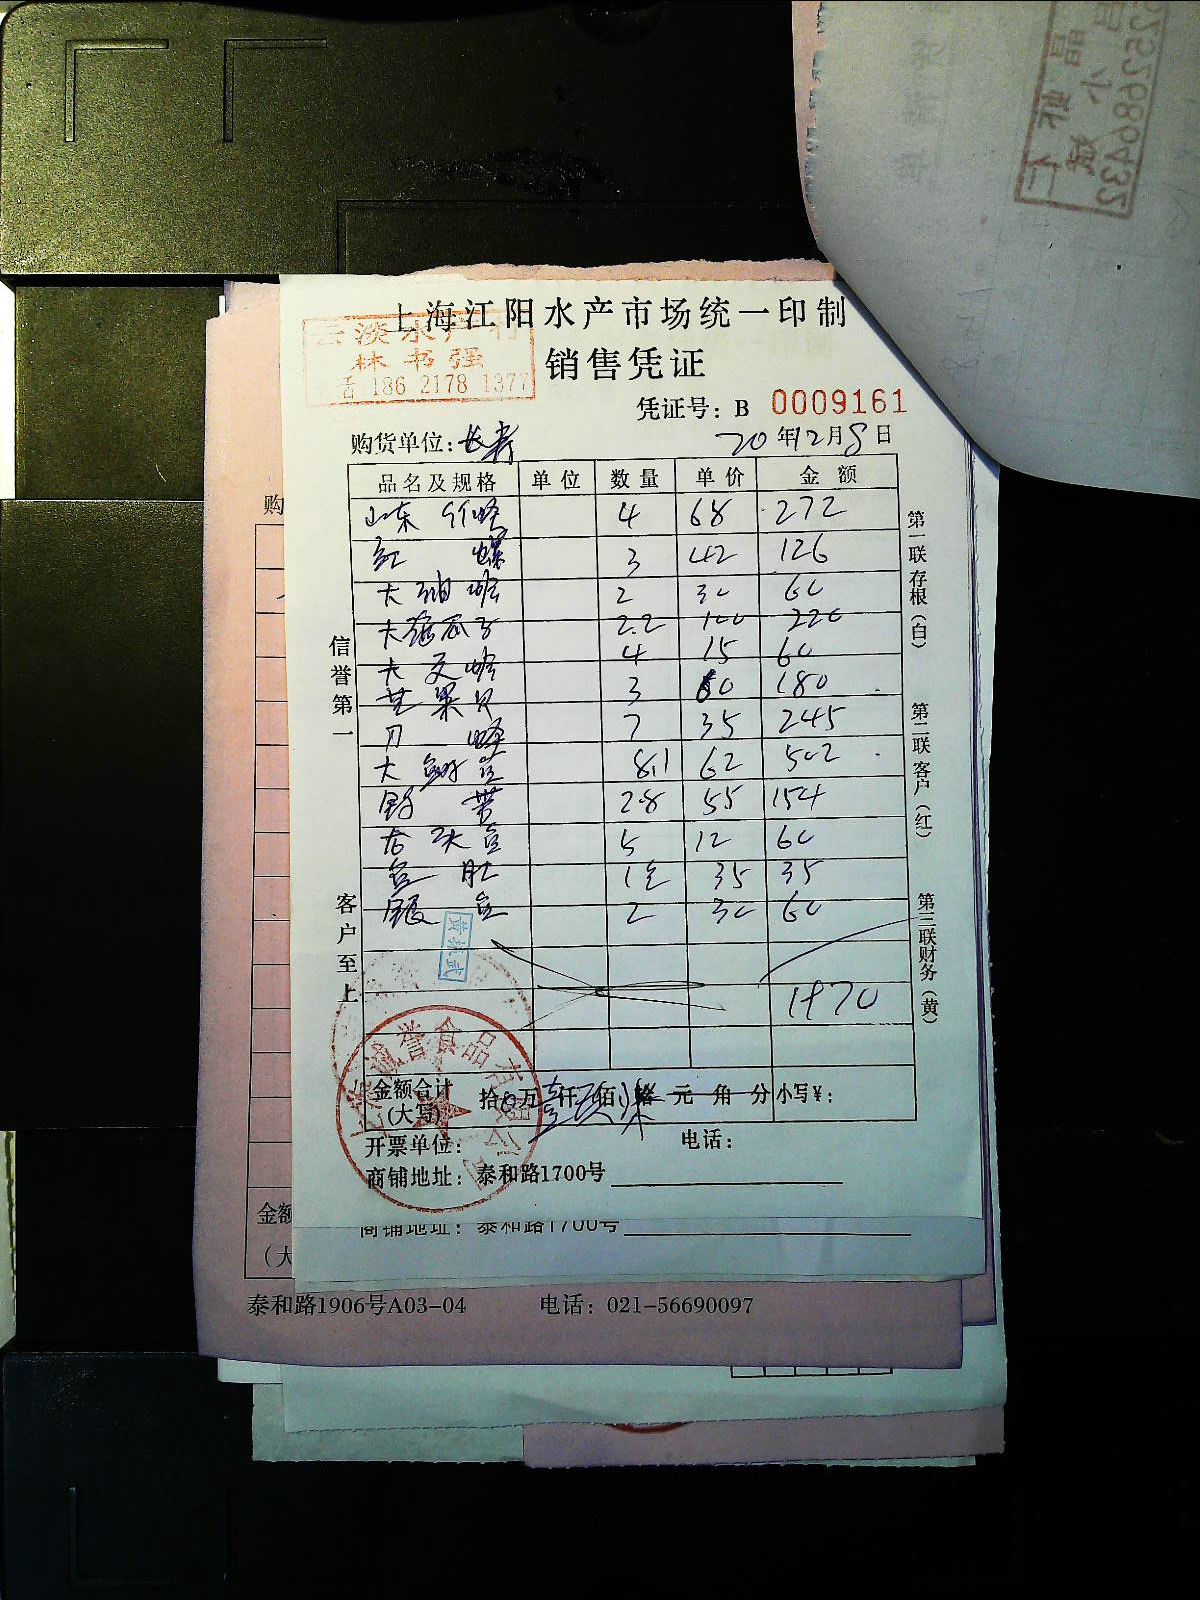 上海江阳水产市场统一印制
销售凭证
云淡水产行
林书强
186 2178 1377
凭证号：B 0009161
购货单位：长寿 20年12月8日
品名及规格 单位 数量 单价 金额
山东竹蛏 4 68 272
红螺 3 42 126
大油蛤 2 30 60
大海瓜子 2.2 100 220
大文蛤 4 15 60
芒果贝 3 60 180
刀蛏 7 35 245
大鱼 8.1 62 502
带 2.8 55 154
鱼 5 12 60
鱼肚 1包 35 35
银鱼 2 30 60
1970
金额合计(大写) 拾 万 仟 佰 拾 元 角 分 小写¥：
开票单位： 电话：
商铺地址：泰和路1700号
信誉第一
客户至上
第一联 存根（白）
第二联 客户（红）
第三联 财务（黄）
诚誉食品有限公司
商铺地址：泰和路1700号
购
金额
（大
泰和路1906号A03-04 电话：021-56690097